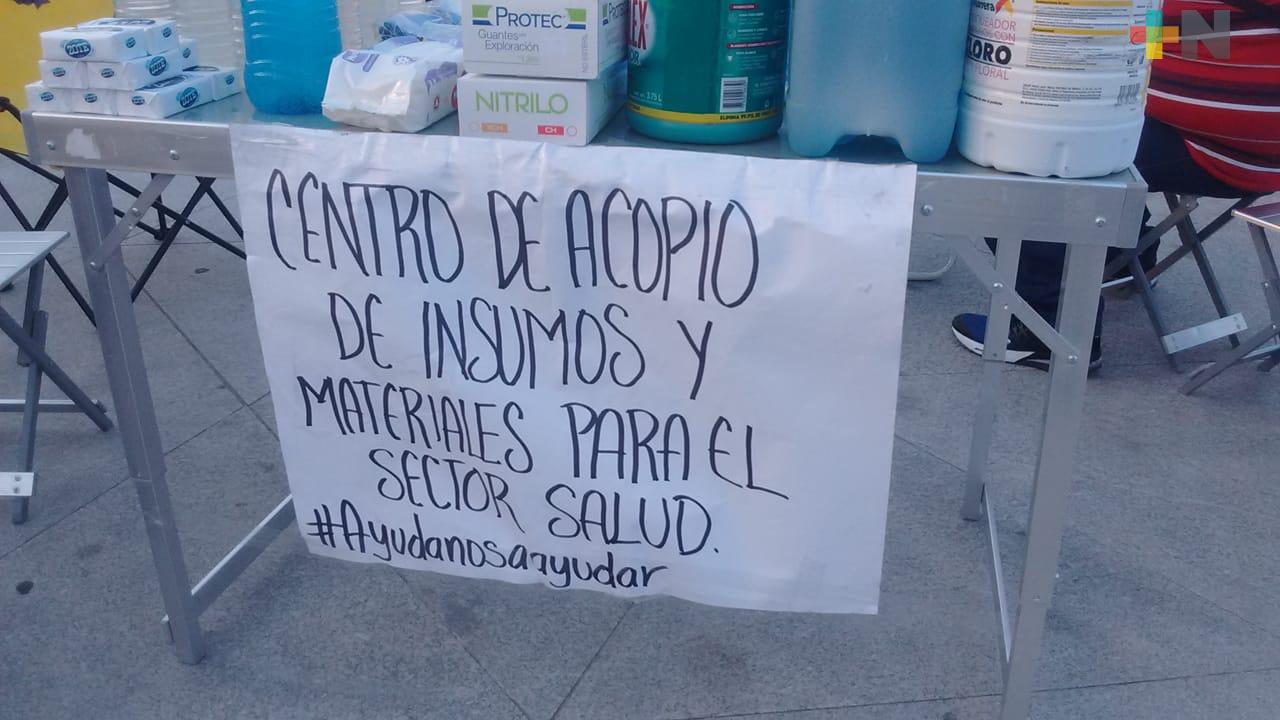 PROTEC
Guantes para
Exploración
NITRILO
CH
EX
3.75 L
CLORO
FLORAL
+N
CENTRO DE ACOPIO
DE INSUMOS Y
MATERIALES PARA EL
SECTOR SALUD.
#Ayudanosaayudar